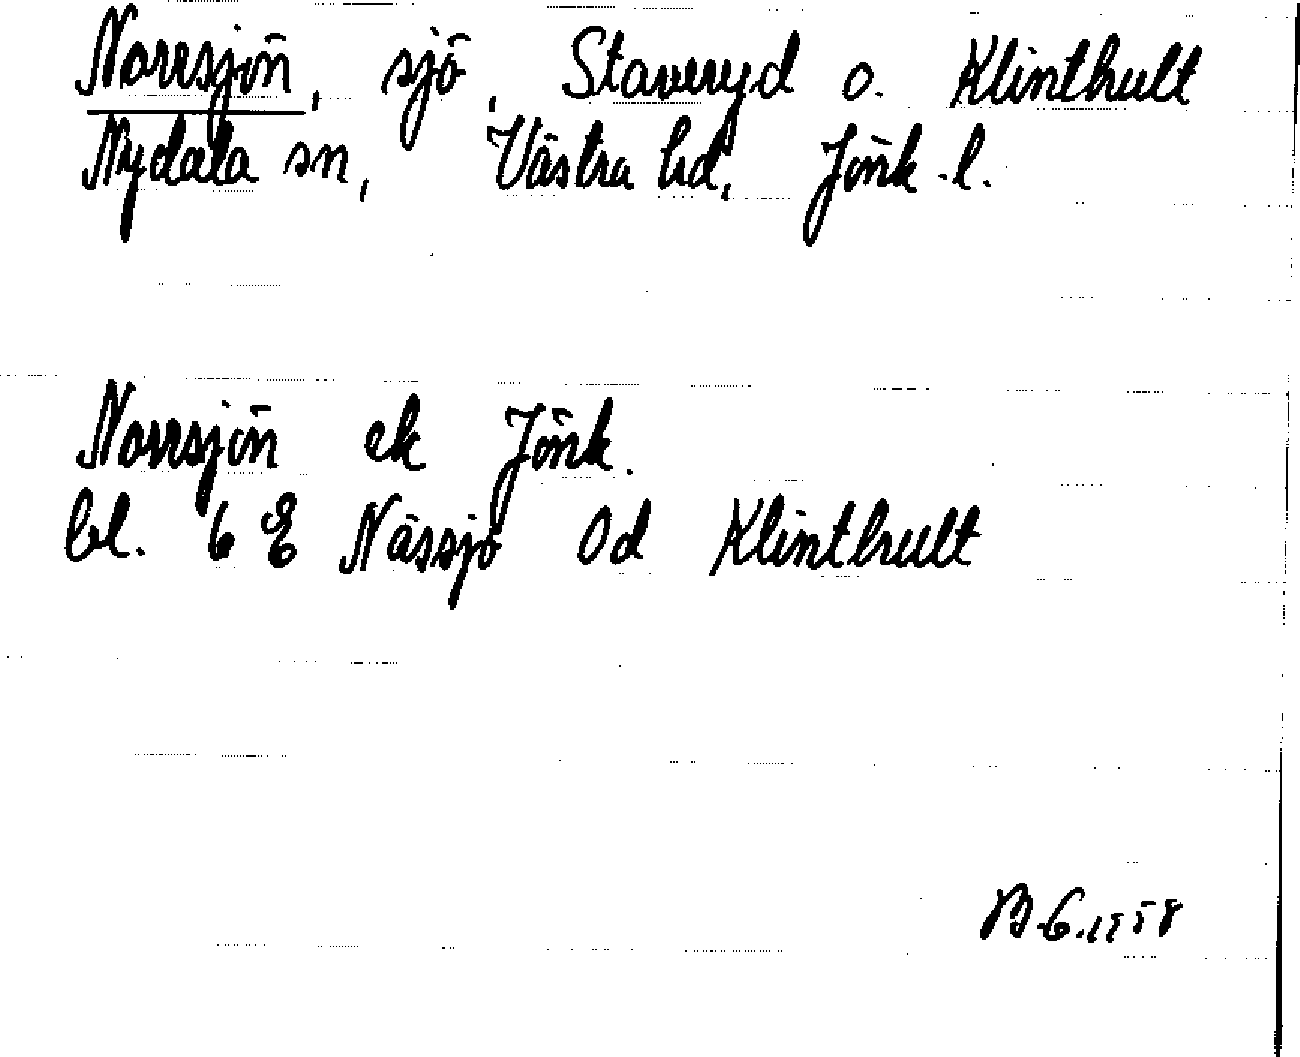 Norrsjön, sjö, Staveryd o. Klinthult
Nydala sn, Västra hd, Jönk.l.
Norrsjön ek Jönk.
bl. 6 E Nässjö 0d Klinthult